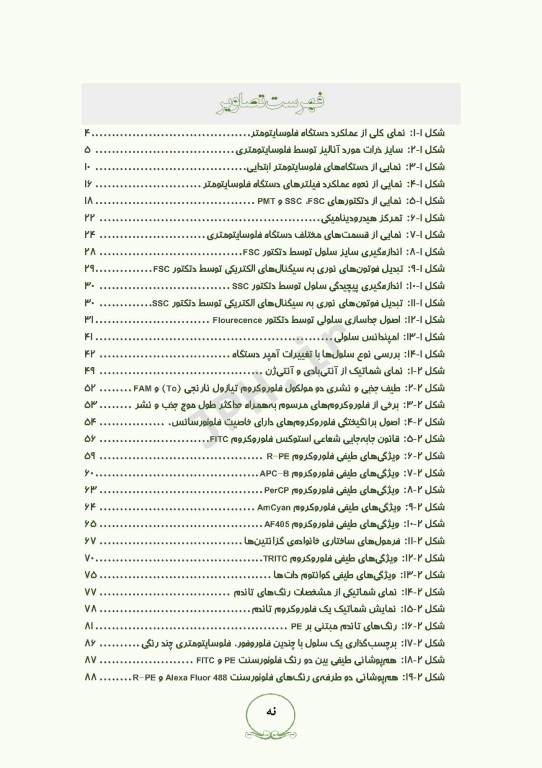 فهرست تصاویر
شکل ۱-۱: نمای کلی از عملکرد دستگاه فلوسایتومتر......................................۴
شکل ۱-۲: سایز ذرات مورد آنالیز توسط فلوسایتومتری..................................۵
شکل ۱-۳: نمایی از دستگاه‌های فلوسایتومتر ابتدایی..................................۱۰
شکل ۱-۴: نمایی از نحوه عملکرد فیلترهای دستگاه فلوسایتومتر..........................۱۶
شکل ۱-۵: نمایی از دتکتورهای SSC ،FSC و PMT.......................................۱۸
شکل ۱-۶: تمرکز هیدرودینامیکی......................................................۲۲
شکل ۱-۷: نمایی از قسمت‌های مختلف دستگاه فلوسایتومتری............................۲۴
شکل ۱-۸: اندازه‌گیری سایز سلول توسط دتکتور FSC...................................۲۸
شکل ۱-۹: تبدیل فوتون‌های نوری به سیگنال‌های الکتریکی توسط دتکتور FSC..............۲۹
شکل ۱-۱۰: اندازه‌گیری پیچیدگی سلول توسط دتکتور SSC................................۳۰
شکل ۱-۱۱: تبدیل فوتون‌های نوری به سیگنال‌های الکتریکی توسط دتکتور SSC.............۳۰
شکل ۱-۱۲: اصول جداسازی سلولی توسط دتکتور Flourecence............................۳۱
شکل ۱-۱۳: امپندانس سلولی..........................................................۴۱
شکل ۱-۱۴: بررسی نوع سلول‌ها با تغییرات آمپر دستگاه................................۴۲
شکل ۲-۱: نمای شماتیک از آنتی‌بادی و آنتی‌ژن.......................................۴۹
شکل ۲-۲: طیف جذبی و نشری دو مولکول فلوروکروم تیازول نارنجی (To) و FAM........۵۲
شکل ۲-۳: برخی از فلوروکروم‌های مرسوم به‌همراه حداکثر طول موج جذب و نشر........۵۳
شکل ۲-۴: اصول برانگیختگی فلوروکروم‌های دارای خاصیت فلوئورسانس. ................۵۴
شکل ۲-۵: قانون جابه‌جایی شعاعی استوکس فلوروکروم FITC...........................۵۶
شکل ۲-۶: ویژگی‌های طیفی فلوروکروم R-PE........................................۵۹
شکل ۲-۷: ویژگی‌های طیفی فلوروکروم APC-B.......................................۶۰
شکل ۲-۸: ویژگی‌های طیفی فلوروکروم PerCP.......................................۶۳
شکل ۲-۹: ویژگی‌های طیفی فلوروکروم AmCyan......................................۶۴
شکل ۲-۱۰: ویژگی‌های طیفی فلوروکروم AF405......................................۶۵
شکل ۲-۱۱: فرمول‌های ساختاری خانواده‌ی گزانتین‌ها.................................۶۷
شکل ۲-۱۲: ویژگی‌های طیفی فلوروکروم TRITC......................................۷۰
شکل ۲-۱۳: ویژگی‌های طیفی کوانتوم دات‌ها.........................................۷۵
شکل ۲-۱۴: نمای شماتیکی از مشخصات رنگ‌های تاندم................................۷۷
شکل ۲-۱۵: نمایش شماتیک یک فلوروکروم تاندم.....................................۷۸
شکل ۲-۱۶: رنگ‌های تاندم مبتنی بر PE..............................................۸۱
شکل ۲-۱۷: برچسب‌گذاری یک سلول با چندین فلوروفور، فلوسایتومتری چند رنگی..........۸۶
شکل ۲-۱۸: هم‌پوشانی طیفی بین دو رنگ فلوئورسنت PE و FITC.......................۸۷
شکل ۲-۱۹: هم‌پوشانی دو طرفه‌ی رنگ‌های فلوئورسنت Alexa Fluor 488 و R-PE........۸۸
JPH.ir
نه